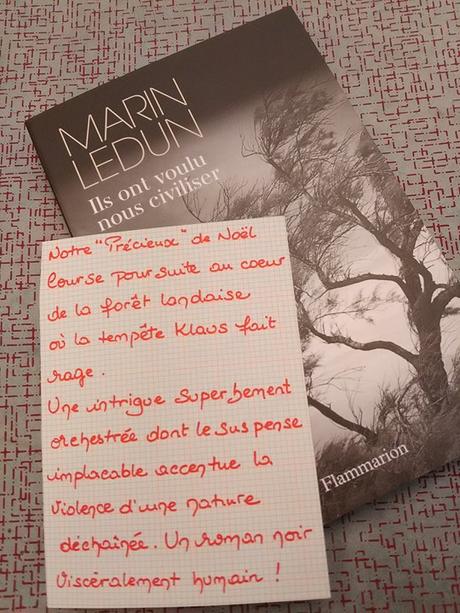 MARIN
LEDUN
Ils ont voulu
nous civiliser
Notre "Précieux" de Noël
Course poursuite au coeur
de la forêt landaise
où la tempête Klaus fait
rage.
Une intrigue superbement
orchestrée dont le suspense
implacable accentue la
violence d'une nature
déchaînée. Un roman noir
viscéralement humain !
Flammarion